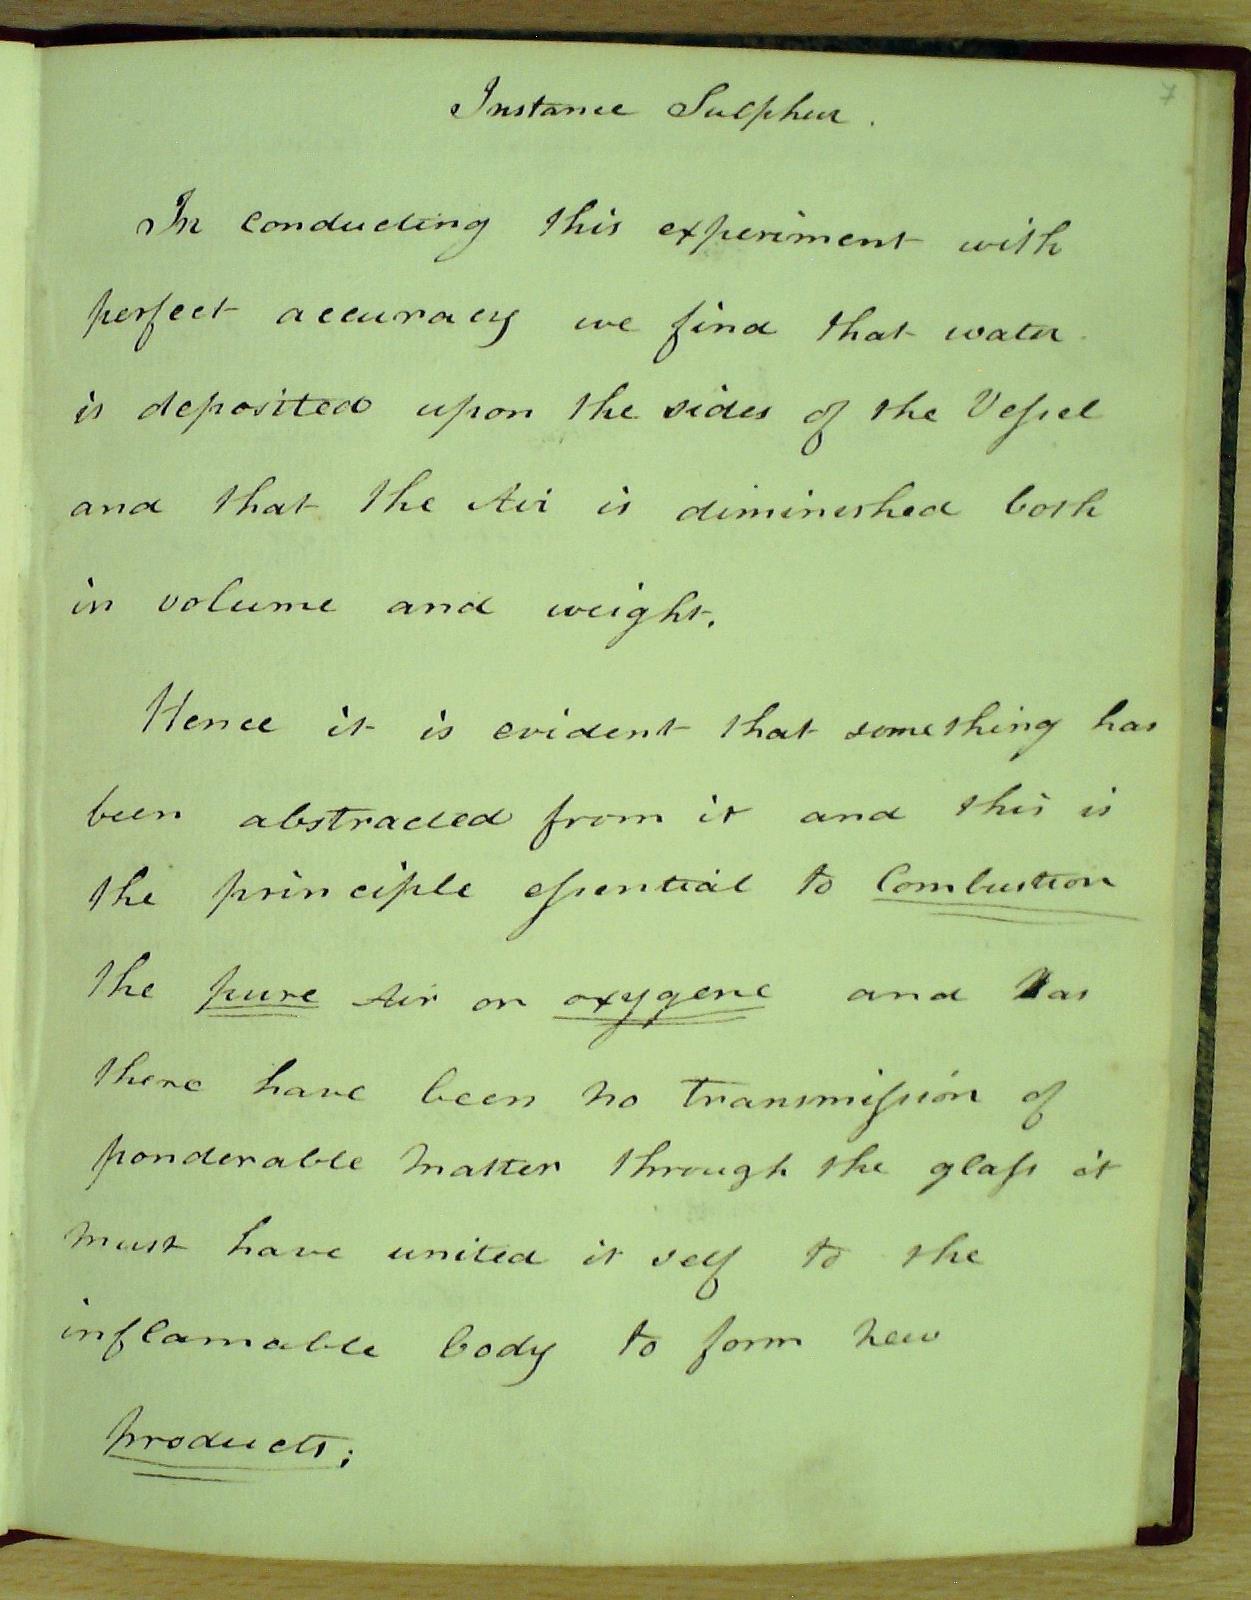 7
Instance Sulphur.
In conducting this experiment with
perfect accuracy we find that water
is deposited upon the sides of the Veſsel
and that the Air is diminished both
in volume and weight.
Hence it is evident that something has
been abstracted from it and this is
the principle eſsential to Combustion
the pure Air or oxygene and as
there have been no transmiſsion of
ponderable matter through the glaſs it
must have united it self to the
inflamable body to form new
products;